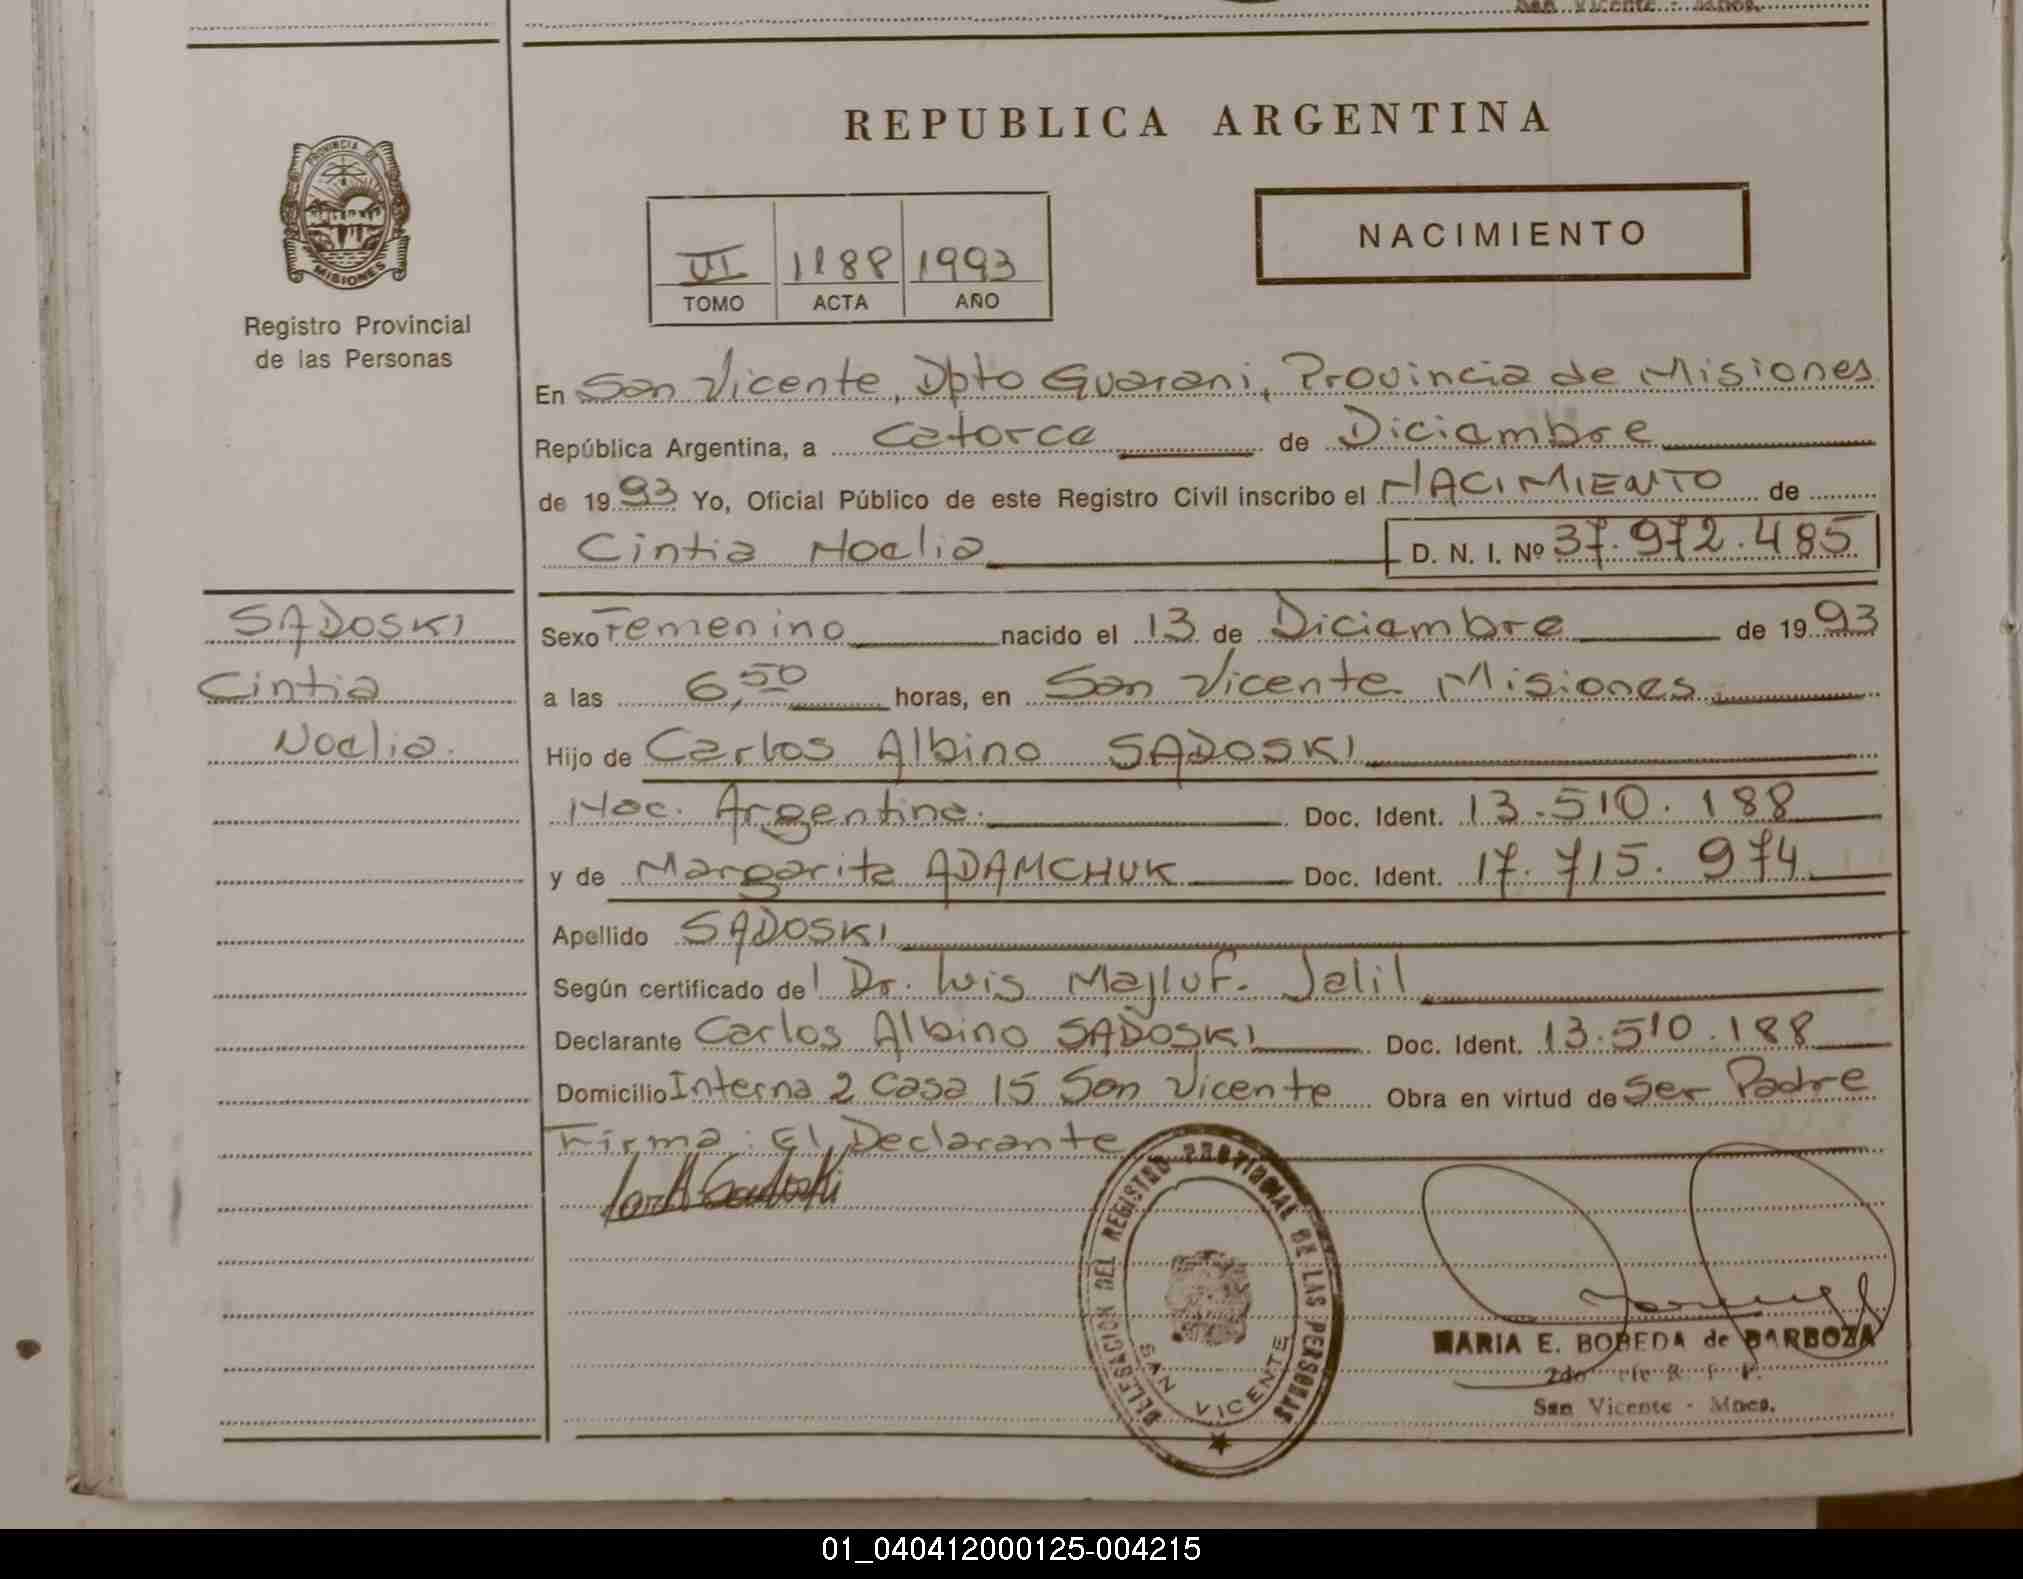 San Vicente - Mnes.
REPUBLICA ARGENTINA
PROVINCIA DE
MISIONES
Registro Provincial
de las Personas
VI 1188 1993
TOMO ACTA AÑO
NACIMIENTO
En San Vicente, Dpto Guarani, Provincia de Misiones
República Argentina, a Catorce de Diciembre
de 1993 Yo, Oficial Público de este Registro Civil inscribo el NACIMIENTO de
Cintia Noelia D. N. I. Nº 37.972.485
SADOSKI
Cintia
Noelia.
Sexo Femenino nacido el 13 de Diciembre de 1993
a las 6,50 horas, en San Vicente Misiones
Hijo de Carlos Albino SADOSKI
Nac. Argentina. Doc. Ident. 13.510.188
y de Margarita ADAMCHUK Doc. Ident. 17.715.974
Apellido SADOSKI
Según certificado del Dr. Luis Majluf. Jalil
Declarante Carlos Albino SADOSKI Doc. Ident. 13.510.188
Domicilio Interna 2 Casa 15 San Vicente Obra en virtud de Ser Padre
Firma: El Declarante
DELEGACION DEL REGISTRO PROVINCIAL DE LAS PERSONAS
SAN VICENTE
MARIA E. BOBEDA de BARBOZA
San Vicente - Mnes.
01_040412000125-004215